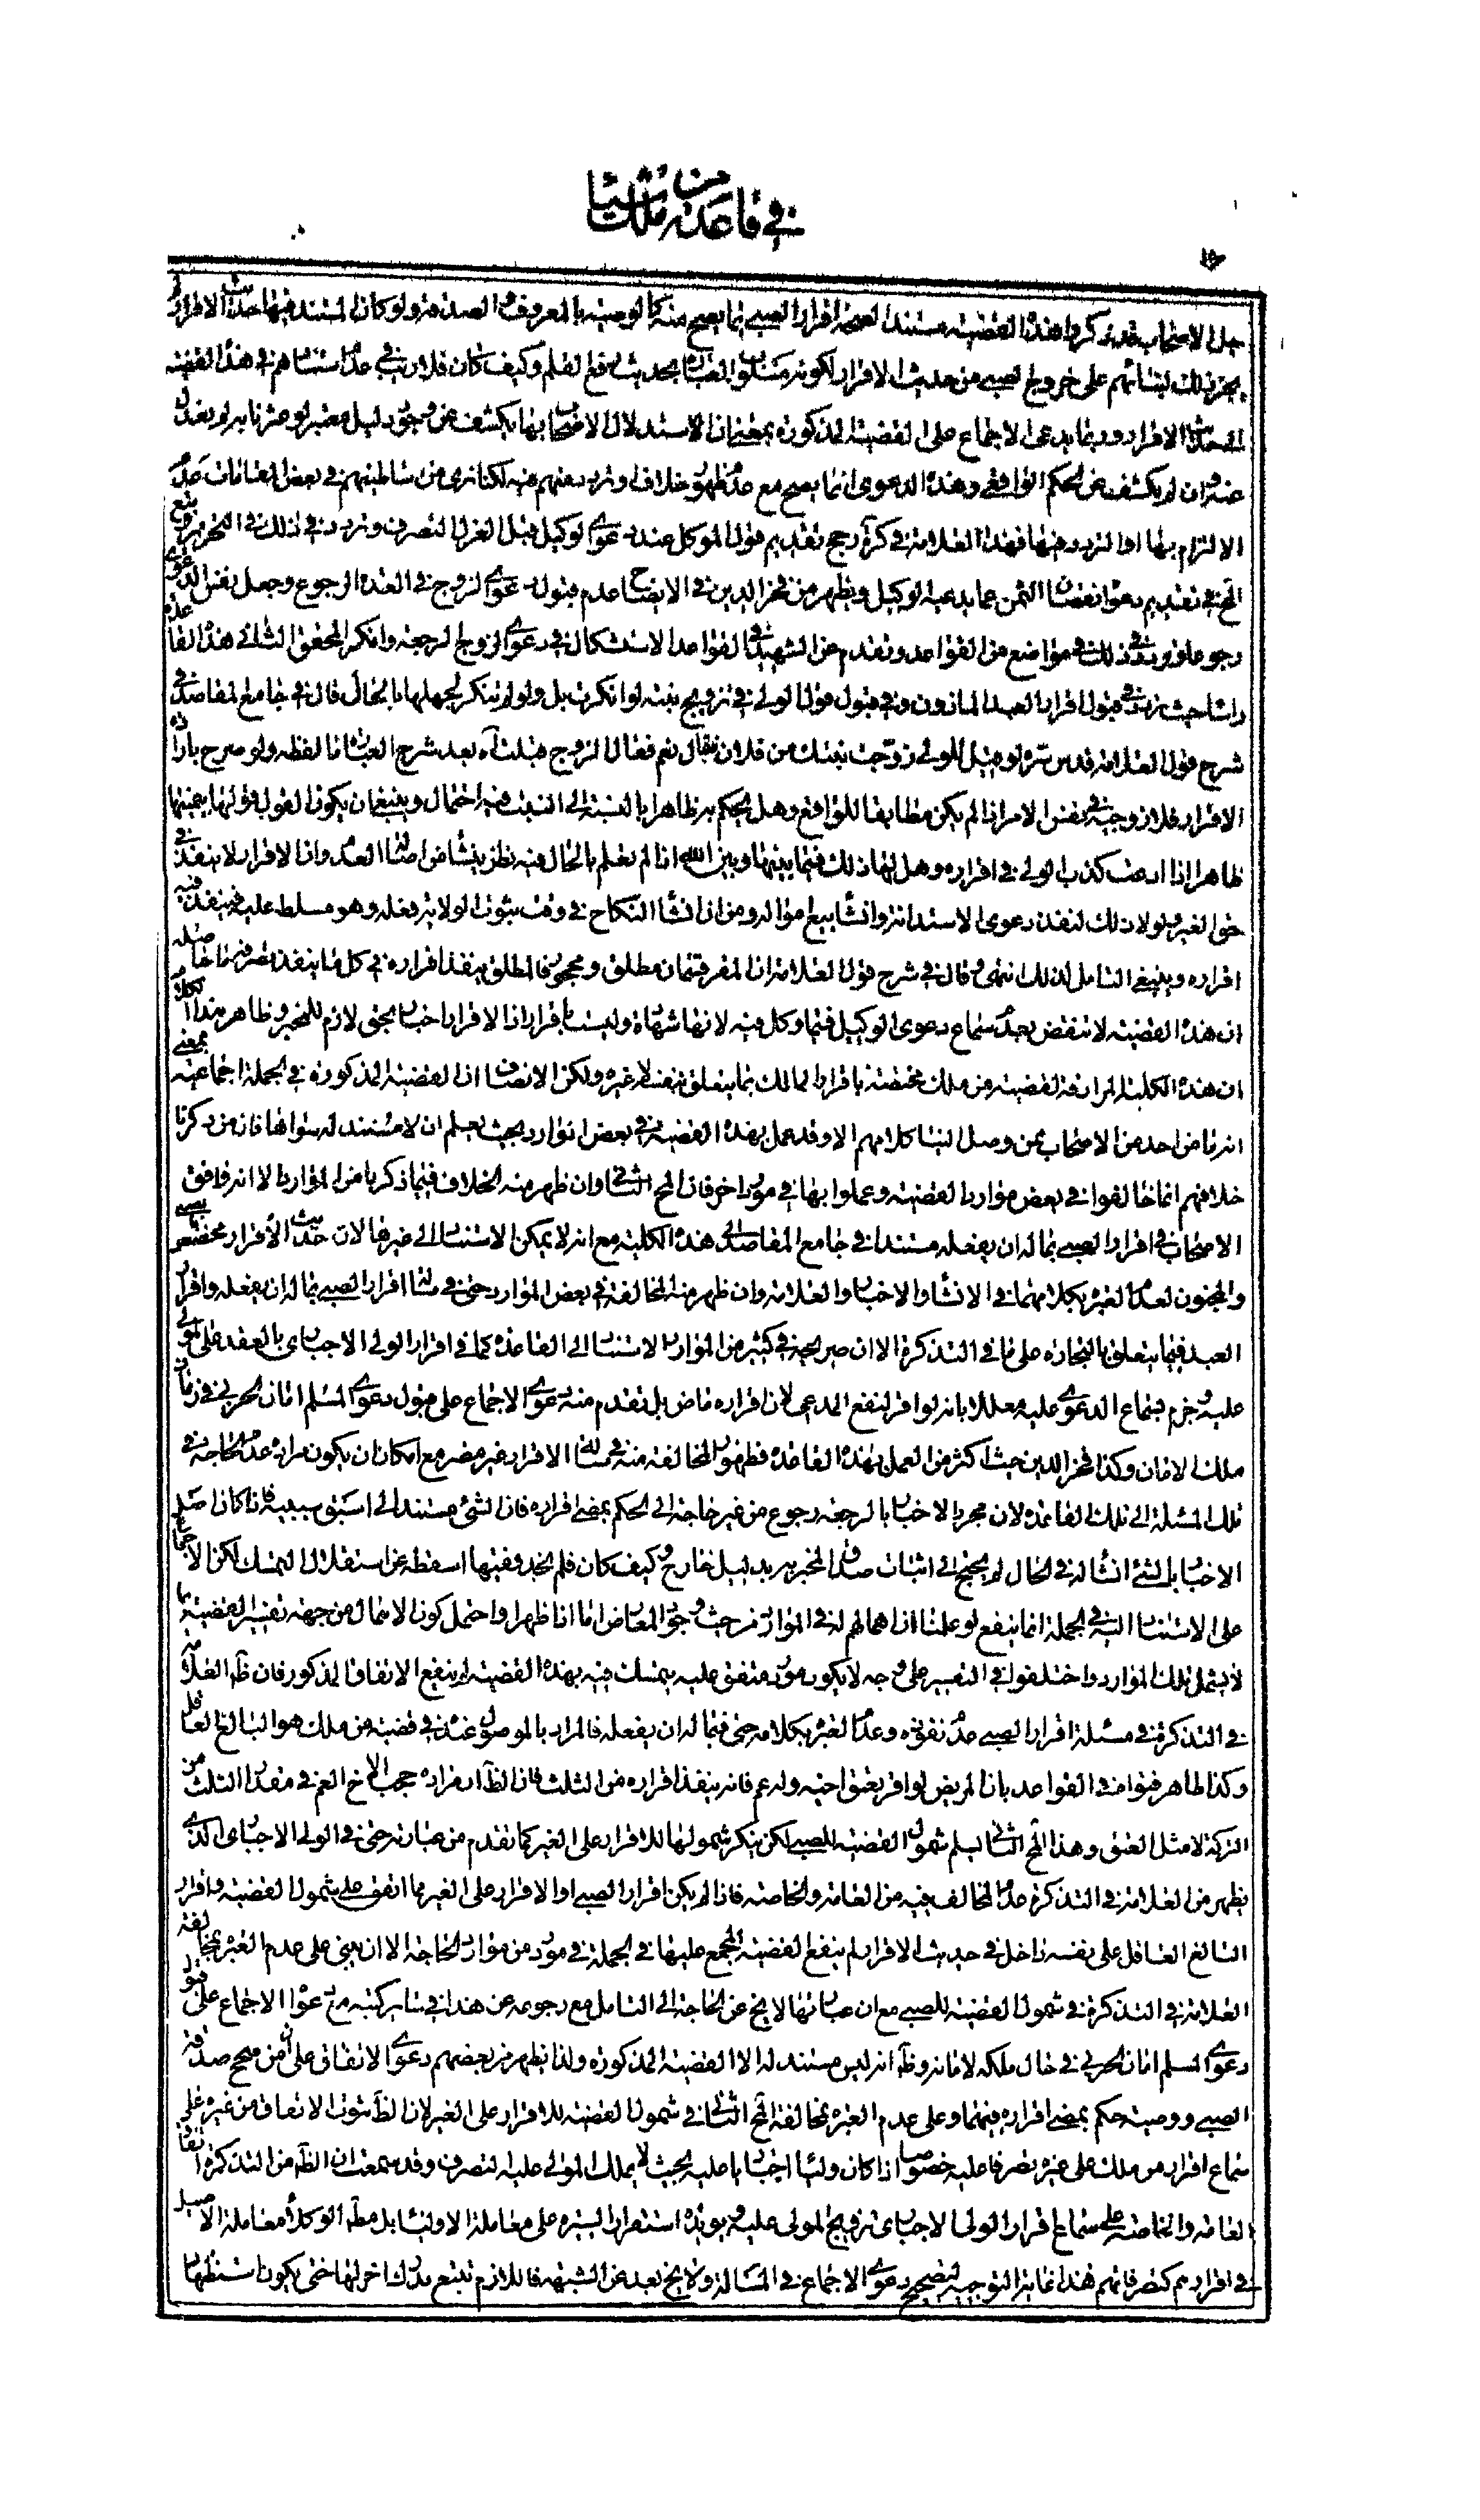 في قاعدة من ملك شيئا
جل الاصحاب قد ذكروا هذه القضية مستندا لصحة اقرار الصبي بما يصح منه كالوصية بالمعروف والصدقة ولو كان المستند فيها حديث الاقرار لم
يجز ذلك لبنائهم على خروج الصبي من حديث الاقرار لكونه مسلوب العبارة بحديث رفع القلم وكيف كان فلا ريب في عدم استنادهم في هذه القضية
الى حديث الاقرار وربما يدعى الاجماع على القضية المذكورة بمعنى ان استدلال الاصحاب بها يكشف عن وجود دليل معتبر لو عثرنا به لم نعدل
عنه وان لم يكشف عن الحكم الواقعي وهذه الدعوى انما يصح مع عدم ظهور خلاف او تردد منهم فيه لكنا نرى من اساطينهم في بعض المقامات عدم
الالتزام بها او التردد فيها فهذا العلامة في كرة رجح تقديم قول الموكل عند دعوى الوكيل قبل العزل التصرف وتردد في ذلك في التحرير وتبع
المح في تقديم دعوى نقصان الثمن عما يدعيه الوكيل ويظهر من فخر الدين في الايضاح عدم قبول دعوى الزوج في العدة الرجوع وجعل نفس الدعوى
رجوعا وتردد في ذلك في مواضع من القواعد وتقدم عن الشهيد في القواعد الاستشكال في دعوى الزوج الرجعة وانكر المحقق الثاني هذه القاعدة
راسا حيث تردد في قبول اقرار العبد الماذون وفي قبول قول الولي في تزويج بنته لو انكرت بل ولو لم تنكر لجهلها بالحال قال في جامع المقاصد في
شرح قول العلامة قدس سره لو قيل للولي زوجت بنتك من فلان فقال نعم فقال الزوج قبلت اه بعد شرح العبارة ما لفظه ولو صرح بارادة
الاقرار فلا زوجية في نفس الامر اذا لم يكن مطابقا للواقع وهل يحكم به ظاهرا بالنسبة الى البنت فيه احتمال وينبغي ان يكون القول قولها بيمينها
ظاهرا اذا ادعت كذب الولي في اقراره وهل لها ذلك فيما بينها وبين الله اذا لم تعلم بالحال فيه نظر ينشأ من اصالة العدم وان الاقرار لا ينفذ في
حق الغير ولولا ذلك لنفذ دعوى الاستدانة وانشأ بيع امواله ومن ان انشأ النكاح في وقت ثبوت الولاية بفعله وهو مسلط عليه فينفذ فيه
اقراره وينبغي التامل لذلك انتهى وقال في شرح قول العلامة ان المقر قسمان مطلق ومحجور فالمطلق ينفذ اقراره في كل ما ينفذ تصرفه ما حاصله
ان هذه القضية لا تنقض بعدم سماع دعوى الوكيل فيما وكل فيه لانها شهادة وليست باقرار اذ الاقرار اخبار بحق لازم للمخبر وظاهر هذا الكلام
ان هذه الكلية المرادفة لقضية من ملك مختصة باقرار المالك بما يتعلق بنفسه لا غيره ولكن الانصاف ان القضية المذكورة في الجملة اجماعية بمعنى
انه ما من احد من الاصحاب ممن وصل الينا كلامهم الا وقد عمل بهذه القضية في بعض الموارد بحيث يعلم ان لا مستند له سواها فان من ذكرنا
خلافهم انما خالفوا في بعض موارد القضية وعملوا بها في مورد اخر فان المح الثاني وان ظهر منه الخلاف فيما ذكرنا من الموارد الا انه وافق
الاصحاب في اقرار الصبي بما له ان يفعله مستندا في جامع المقاصد الى هذه الكلية مع انه لا يمكن الاستناد الى غيرها لان حديث الاقرار مختص بغير الصبي
والمجنون لعدم العبرة بكلامهما في الانشاء والاخبار والعلامة وان ظهر منه المخالفة في بعض الموارد حتى في مسالة اقرار الصبي بما له ان يفعله واقرار
العبد فيما يتعلق بالتجارة على ما في التذكرة الا ان صريحه في كثير من الموارد الاستناد الى القاعدة كما في اقرار الولي الاجباري بالعقد على المولى
عليه وجزم بسماع الدعوى عليه معللا بانه لو اقر لنفع المدعي لان اقراره ماض بل تقدم منه دعوى الاجماع على قبول دعوى المسلم امان الحربي في زمان
ملك الامان وكذا فخر الدين حيث اكثر من العمل بهذه القاعدة فظهور المخالفة منه في مسالة الاقرار غير مضر مع امكان ان يكون مراده عدم الحاجة في
تلك المسئلة الى تلك القاعدة لان مجرد الاخبار بالرجعة رجوع من غير حاجة الى الحكم بمضي اقراره فان الشئ مستند الى اسبق سببيه فاذا كان اصل
الاخبار بالشئ انشأ له في الحال لم يحتج الى اثبات صدق المخبر به بدليل خارج وكيف كان فلم الخدوشة فيها اسقطه عن استقلال التمسك لكن الاجماع
على الاستناد اليه في الجملة انما ينفع لو علمنا ان اهمالهم له في الموارد من حيث وجود المعارض اما اذا ظهر او احتمل كون الاهمال من جهة تفسير القضية بما
لا يشمل تلك الموارد واختلفوا في التفسير على وجه لا يكون مورد متفق عليه يتمسك فيه بهذه القضية لم ينفع الاتفاق المذكور فان ظ العلامة
في التذكرة في مسئلة اقرار الصبي عدم نفوذه وعدم العبرة بكلامه حتى فيما له ان يفعله فالمراد بالموصول عنده في قضية من ملك هو البالغ العاقل
وكذا ظاهر فتواه في القواعد بان المريض لو اقر بعتق اخيه وله عم فانه ينفذ اقراره من الثلث فان الظ ان مراده حجب الاخ العم في مقدار الثلث من
التركة لا مثل العتق وهذا المح الثاني يسلم شمول القضية للصبي لكن ينكر شمولها للاقرار على الغير كما تقدم من عبارته حتى في الولي الاجباري الذي
يظهر من العلامة في التذكرة عدم المخالف فيه من العامة والخاصة فاذا لم يكن اقرار الصبي او الاقرار على الغير مما اتفق على شمول القضية واقرار
البالغ العاقل على نفسه داخل في حديث الاقرار لم ينفع القضية المجمع عليها في الجملة في مورد من موارد الحاجة الا ان يبنى على عدم العبرة بمخالفة
العلامة في التذكرة في شمول القضية للصبي مع ان عبارتها لا يخ عن الحاجة الى التامل مع رجوعه عن هذا في سائر كتبه مع دعواه الاجماع على قبول
دعوى المسلم امان الحربي في حال ملكه لامانه وظ انه ليس مستند له الا القضية المذكورة ولذا يظهر من بعضهم دعوى الاتفاق على ان من صحح صدقة
الصبي ووصيته حكم بمضي اقراره فيهما وعلى عدم العبرة بمخالفة المح الثاني في شمول القضية للاقرار على الغير لان الظ ثبوت الاتفاق من غيره على
سماع اقرار من ملك على غيره تصرفا عليه خصوصا اذا كان وليا اجباريا عليه بحيث لا يملك المولى عليه التصرف وقد سمعت ان الظ من التذكرة اتفاق
العامة والخاصة على سماع اقرار الولي الاجباري تزويج المولى عليه ويؤيده استقرار السيرة على معاملة الاولياء بل مط الوكلاء معاملة الاصيل
في اقرارهم كتصرفاتهم هذا غاية التوجيه لتصحيح دعوى الاجماع في المسالة ولا يخ بعد عن الشبهة فاللازم تتبع مدرك اخر لها حتى يكون استظهار